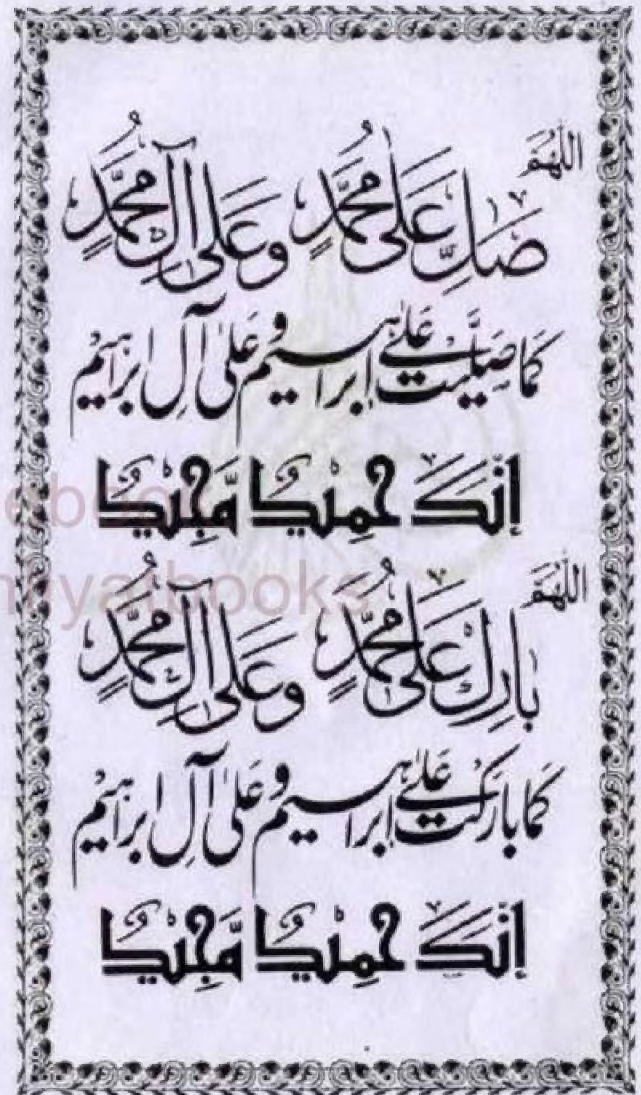 اللهُمَّ
صَلِّ عَلٰى مُحَمَّدٍ وَّعَلٰى اٰلِ مُحَمَّدٍ
كَمَا صَلَّيْتَ عَلٰى اِبْرَاهِيْمَ وَعَلٰى اٰلِ اِبْرَاهِيْمَ
اِنَّكَ حَمِيْدٌ مَّجِيْدٌ
اللهُمَّ
بَارِكْ عَلٰى مُحَمَّدٍ وَّعَلٰى اٰلِ مُحَمَّدٍ
كَمَا بَارَكْتَ عَلٰى اِبْرَاهِيْمَ وَعَلٰى اٰلِ اِبْرَاهِيْمَ
اِنَّكَ حَمِيْدٌ مَّجِيْدٌ